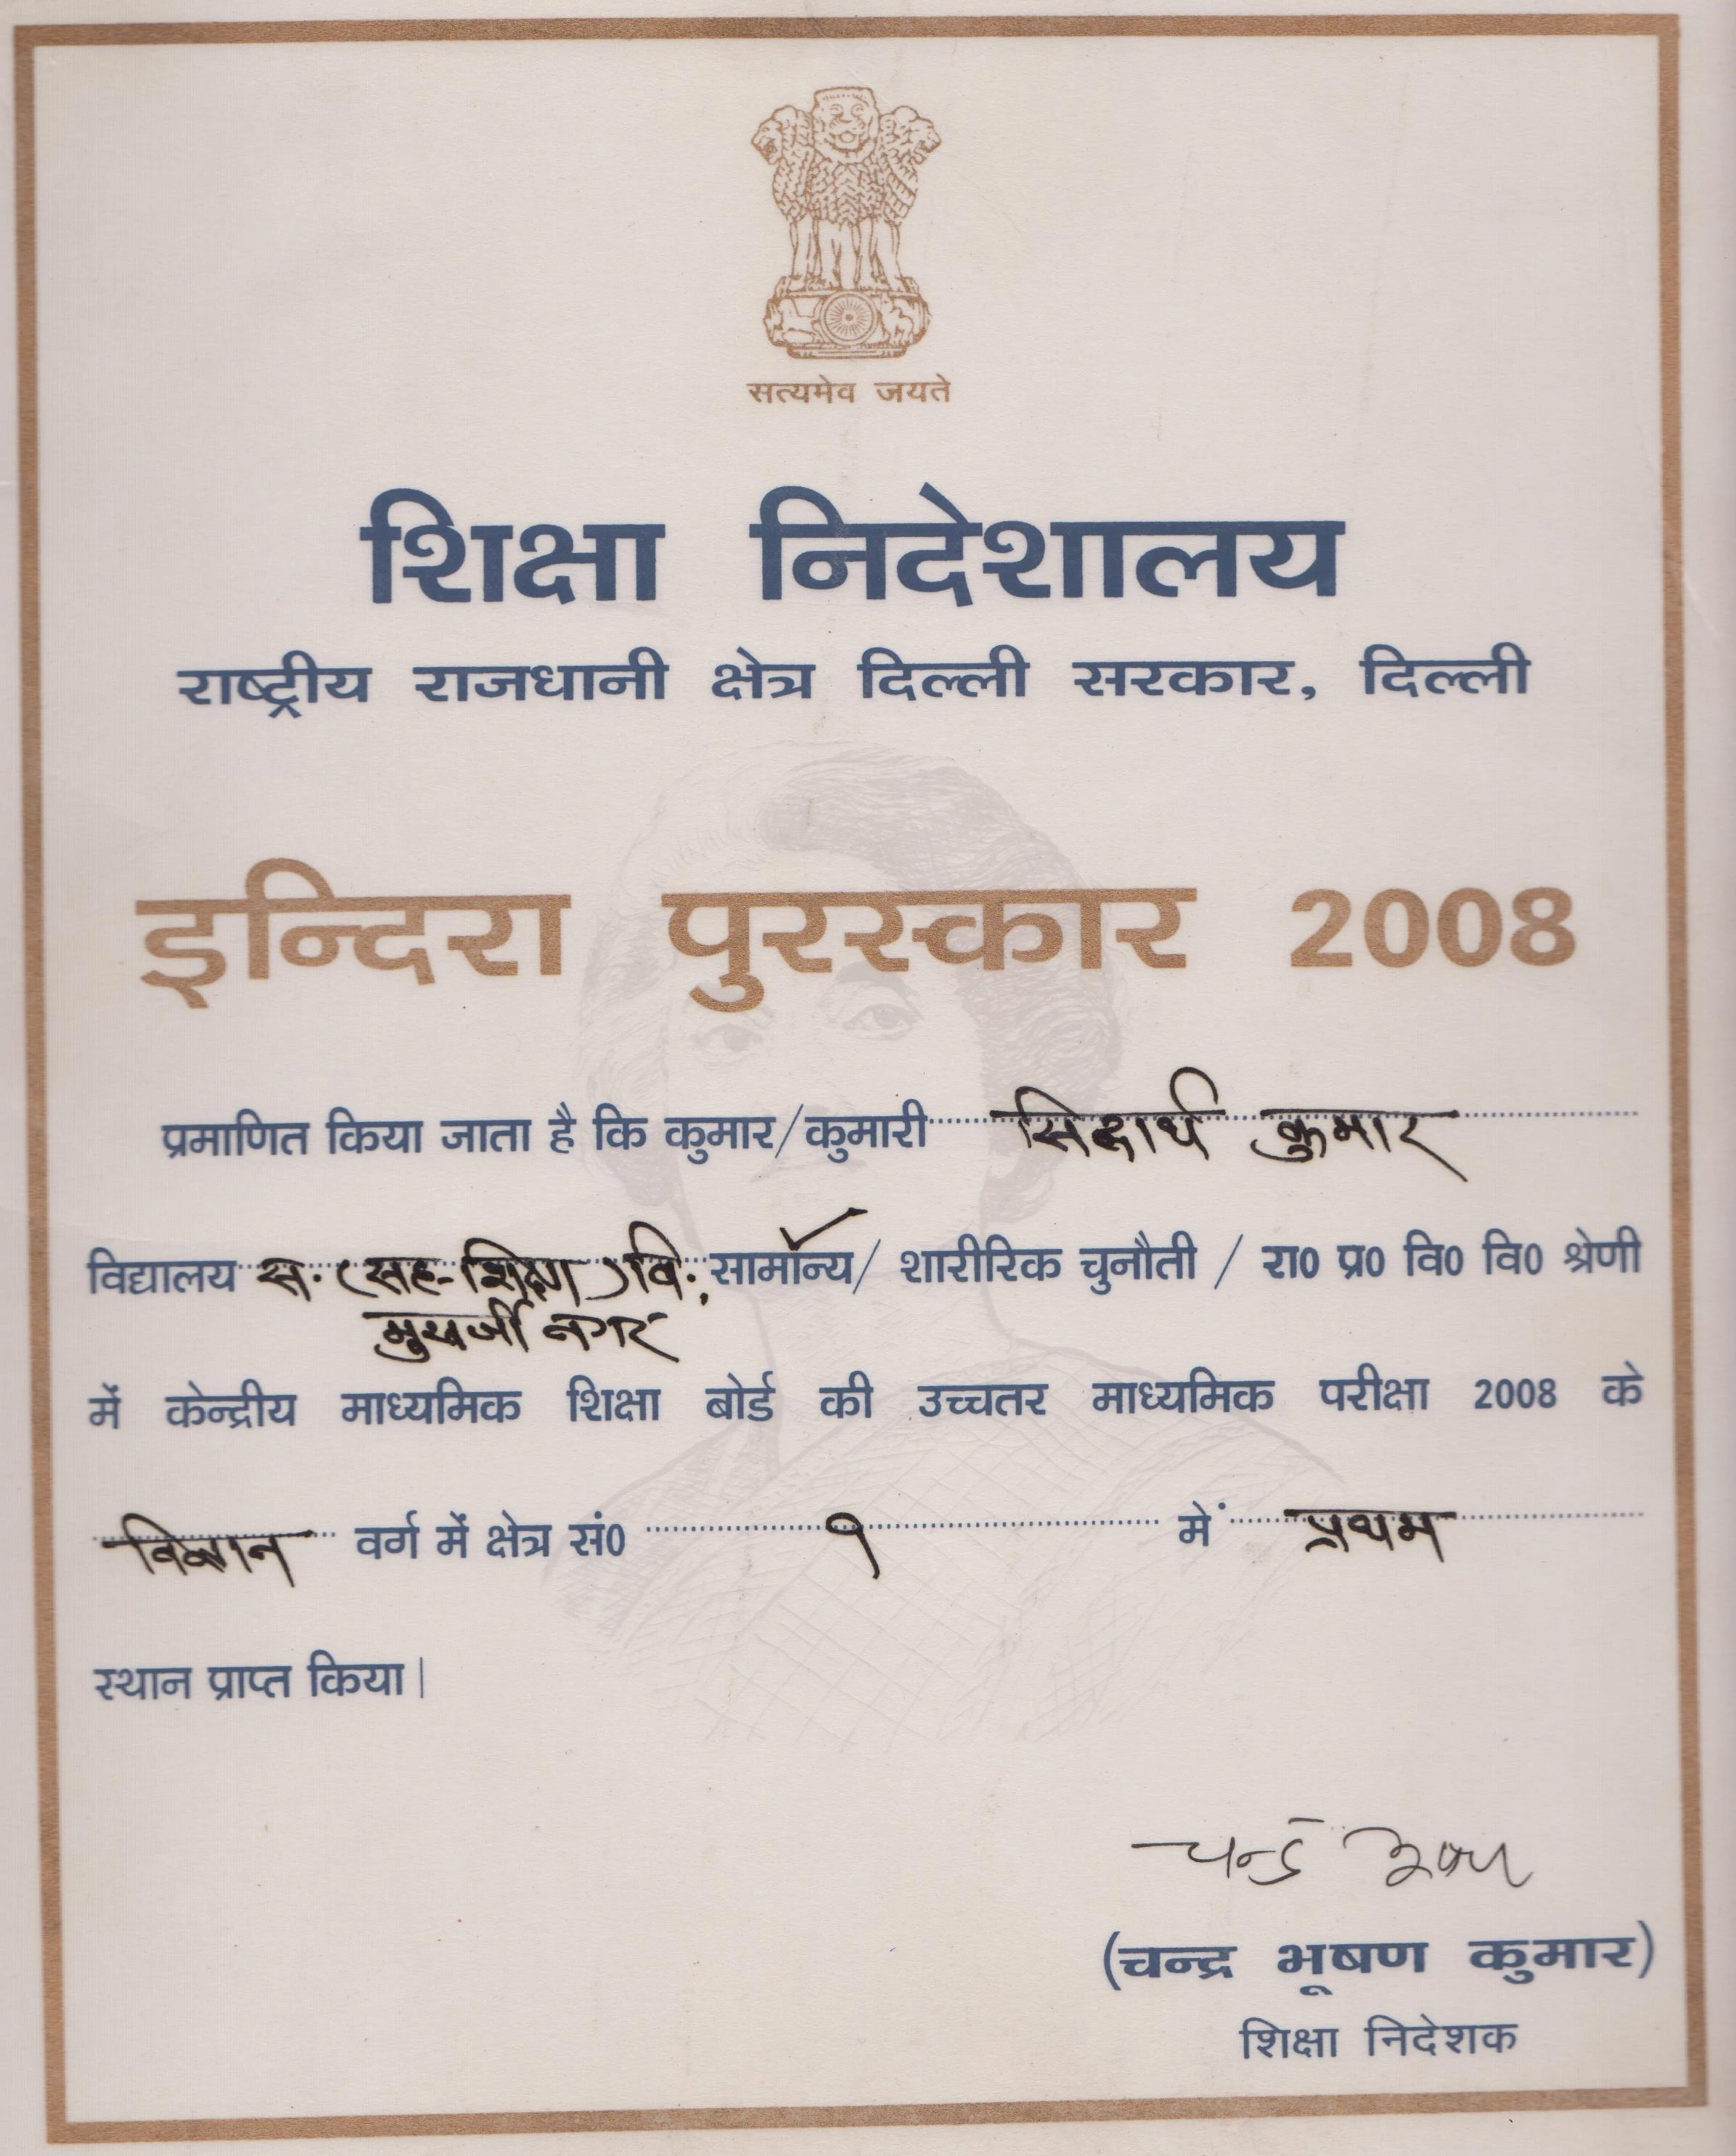 सत्यमेव जयते
शिक्षा निदेशालय
राष्ट्रीय राजधानी क्षेत्र दिल्ली सरकार, दिल्ली
इन्दिरा पुरस्कार 2008
प्रमाणित किया जाता है कि कुमार/कुमारी सिद्धार्थ कुमार
विद्यालय स. (सह-शिक्षा) वि., सामान्य/ शारीरिक चुनौती / रा0 प्र0 वि0 वि0 श्रेणी
मुखर्जी नगर
में केन्द्रीय माध्यमिक शिक्षा बोर्ड की उच्चतर माध्यमिक परीक्षा 2008 के
विज्ञान वर्ग में क्षेत्र सं0 १ में प्रथम
स्थान प्राप्त किया।
चन्द्र भूषण
(चन्द्र भूषण कुमार)
शिक्षा निदेशक